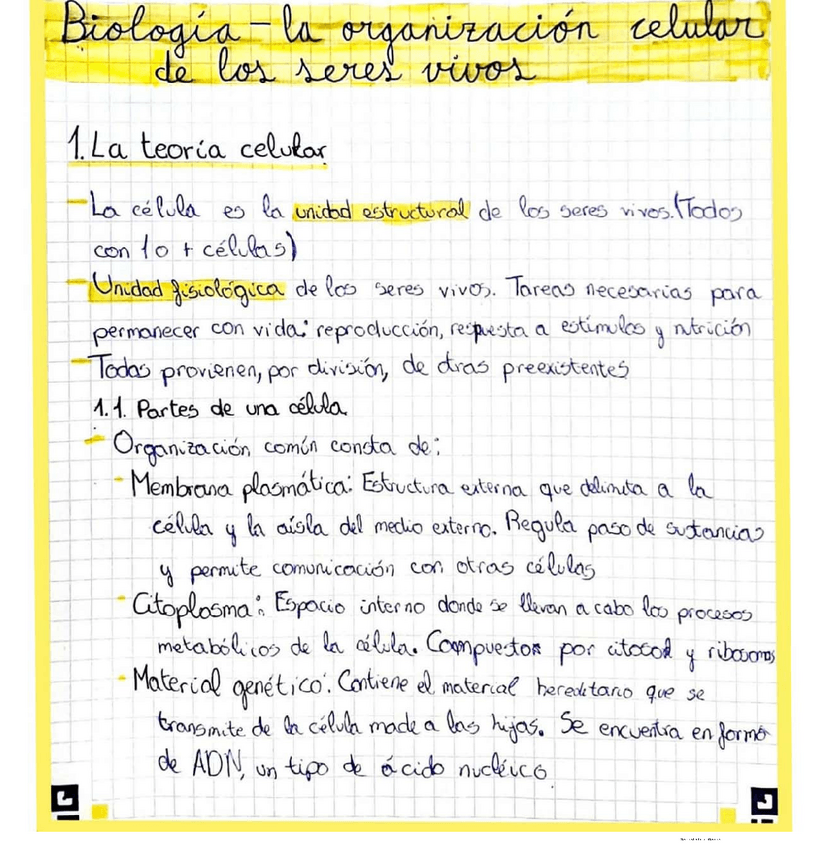 Biología - la organización celular
de los seres vivos
1. La teoría celular
- La célula es la unidad estructural de los seres vivos. (Todos
con 1 o + células)
- Unidad fisiológica de los seres vivos. Tareas necesarias para
permanecer con vida: reproducción, respuesta a estímulos y nutrición
- Todas provienen, por división, de otras preexistentes
1.1. Partes de una célula
- Organización común consta de:
- Membrana plasmática: Estructura externa que delimita a la
célula y la aísla del medio externo. Regula paso de sustancias
y permite comunicación con otras células
- Citoplasma: Espacio interno donde se llevan a cabo los procesos
metabólicos de la célula. Compuesto por citosol y ribosomas
- Material genético: Contiene el material hereditario que se
transmite de la célula made a las hijas. Se encuentra en forma
de ADN, un tipo de ácido nucléico